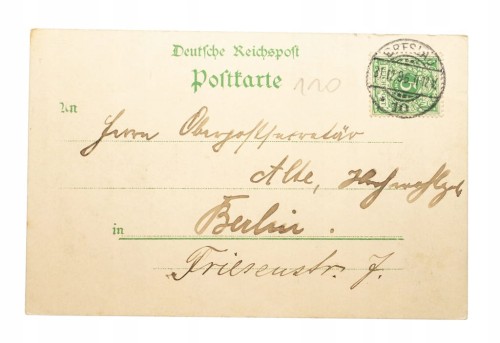 Deutsche Reichspost
Postkarte
110
An
Herrn Oberpostsecretär
Alte, Hochwohlgeb.
in Berlin.
Friesenstr. 7.